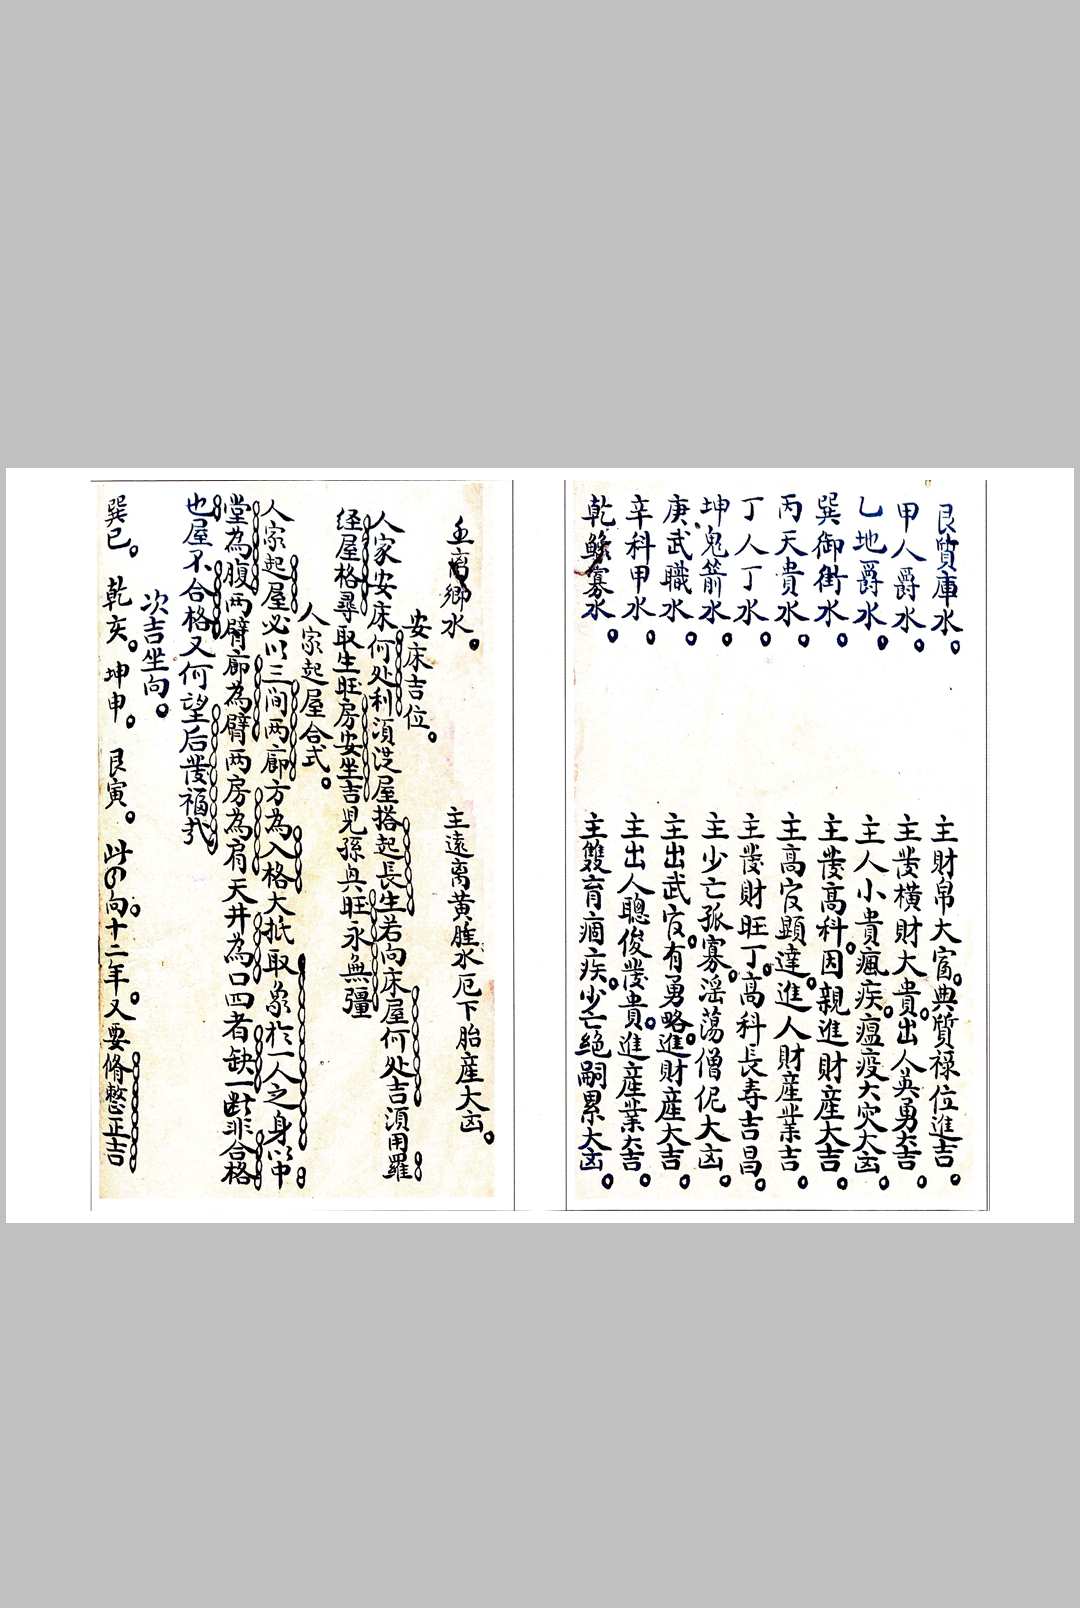 艮質庫水。主財帛大富。典質祿位進吉。
甲人爵水。主發橫財大貴。出人英勇大吉。
乙地爵水。主人小貴瘋疾。瘟疫大灾大凶。
巽御街水。主發高科。因親進財産大吉。
丙天貴水。主高官顕達。進人財産業吉。
丁人丁水。主發財旺丁。高科長寿吉昌。
坤鬼箭水。主少亡孤寡。滛蕩僧伲大凶。
庚武職水。主出武官。有勇略。進財産大吉。
辛科甲水。主出人聰俊發貴。進産業大吉。
乾鰥寡水。主雙盲痼疾。少亡絕嗣累大凶。
壬离鄉水。主遠离黃腫水厄下胎産大凶。
安床吉位。
人家安床何处利須従屋搭起長生若向床屋何处吉須用羅
経屋格尋取生旺房安坐吉児孫興旺永無彊
人家起屋合式。
人家起屋必以三间两廊方為入格大抵取象於一人之身以中
堂為腹两臂廊為臂两房為肩天井為口四者缺一断非合格
也屋不合格又何望后發福哉
次吉坐向。
巽巳。乾亥。坤申。艮寅。此四向。十二年。又要脩整正吉